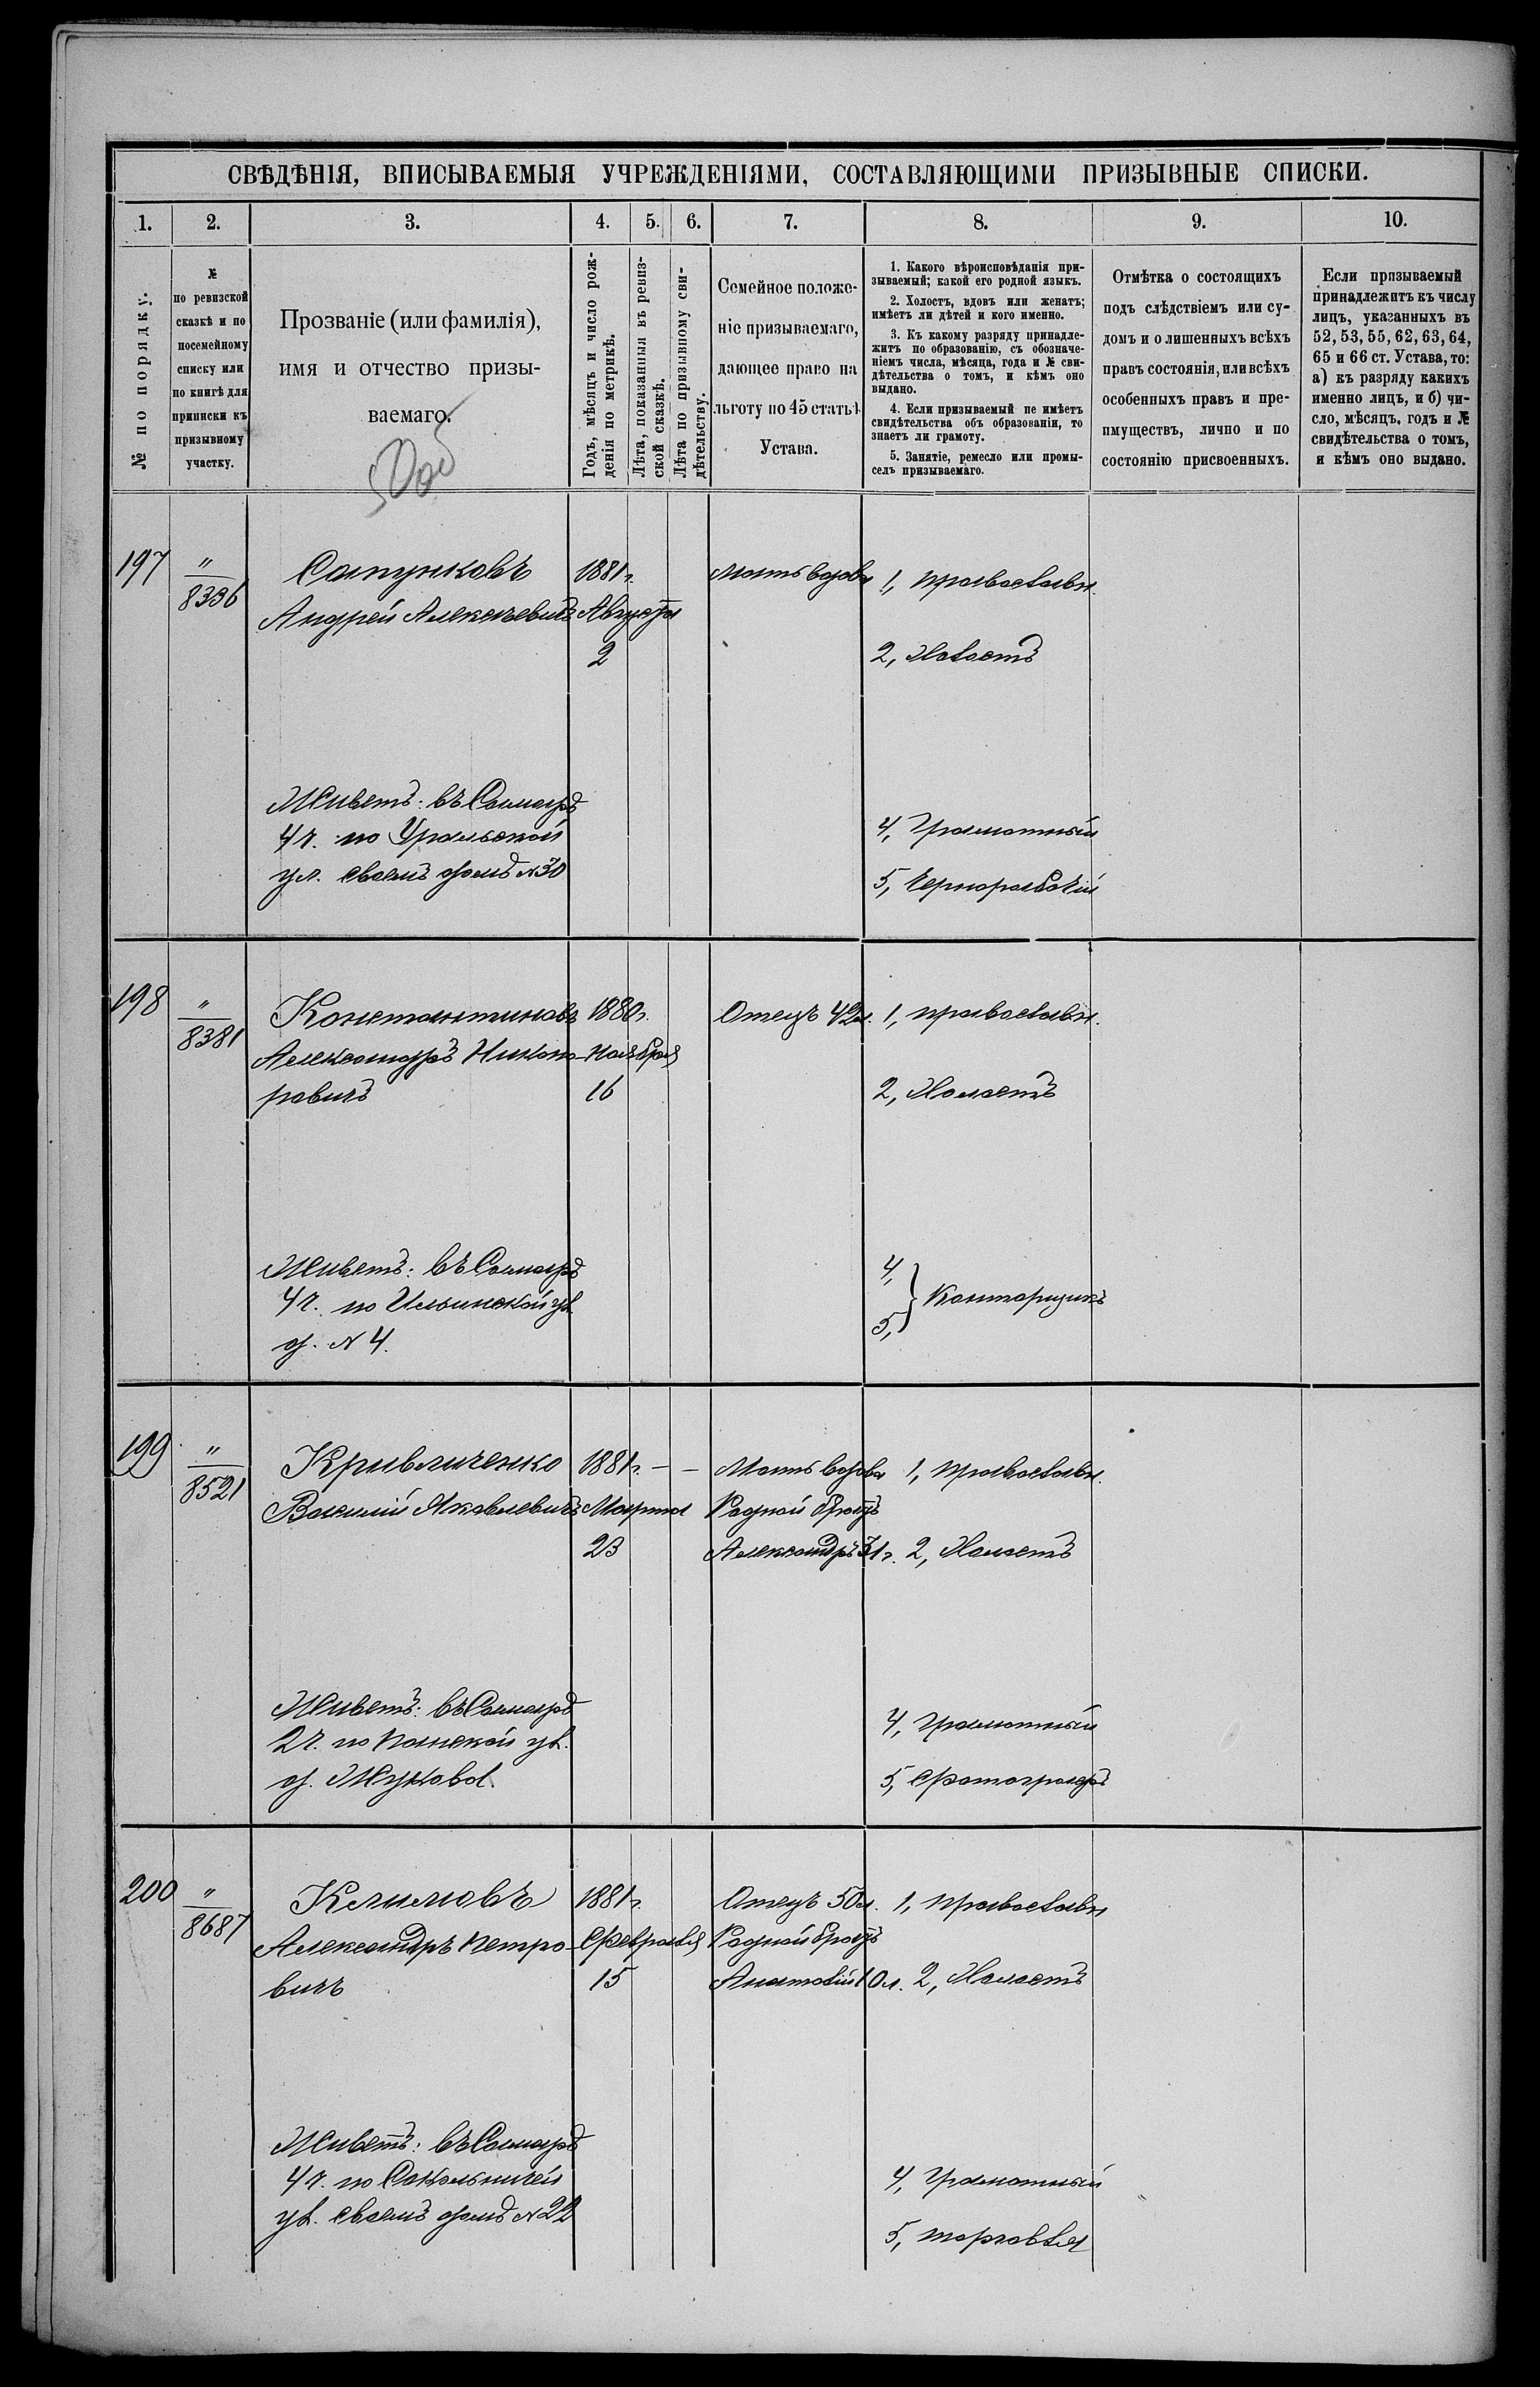 СВѢДѢНІЯ, ВПИСЫВАЕМЫЯ УЧРЕЖДЕНІЯМИ, СОСТАВЛЯЮЩИМИ ПРИЗЫВНЫЕ СПИСКИ.
1. 2. 3. 4. 5. 6. 7. 8. 9. 10.
№ по порядку.
№
по ревизской
сказкѣ и по
посемейному
списку или
по книгѣ для
приписки къ
призывному
участку.
Прозваніе (или фамилія),
имя и отчество призы-
ваемаго.
Годъ, мѣсяцъ и число рож-
денія по метрикѣ.
Лѣта, показанныя въ ревиз-
ской сказкѣ.
Лѣта по призывному сви-
дѣтельству.
Семейное положе-
ніе призываемаго,
дающее право на
льготу по 45 статьѣ
Устава.
1. Какого вѣроисповѣданія при-
зываемый; какой его родной языкъ.
2. Холостъ, вдовъ или женатъ;
имѣетъ ли дѣтей и кого именно.
3. Къ какому разряду принадле-
житъ по образованію, съ обозначе-
ніемъ числа, мѣсяца, года и № сви-
дѣтельства о томъ, и кѣмъ оно
выдано.
4. Если призываемый не имѣетъ
свидѣтельства объ образованіи, то
знаетъ ли грамоту.
5. Занятіе, ремесло или промы-
селъ призываемаго.
Отмѣтка о состоящихъ
подъ слѣдствіемъ или су-
домъ и о лишенныхъ всѣхъ
правъ состоянія, или всѣхъ
особенныхъ правъ и пре-
имуществъ, лично и по
состоянію присвоенныхъ.
Если призываемый
принадлежитъ къ числу
лицъ, указанныхъ въ
52, 53, 55, 62, 63, 64,
65 и 66 ст. Устава, то:
а) къ разряду какихъ
именно лицъ, и б) чи-
сло, мѣсяцъ, годъ и №
свидѣтельства о томъ,
и кѣмъ оно выдано.
197 " Сапунковъ 1881 г. Мать вдова 1, Православн.
8336 Андрей Алексѣевичъ Августа
2 2, Холостъ
Живетъ: въ Самарѣ
4 ч. по Уральской 4, Грамотный
ул. своемъ домѣ № 30 5, Чернорабочій
198 " Константиновъ 1880 г. Отецъ 42 л. 1, Православн.
8381 Александръ Никано- Ноября
ровичъ 16 2, Холостъ
Живетъ: въ Самарѣ 4,
4 ч. по Ильинской ул. } Конторщикъ
д. № 4. 5,
199 " Кривличенко 1881 г. — — Мать вдова 1, Православн.
8521 Василій Яковлевичъ Марта Родной братъ
23 Александръ 31 г. 2, Холостъ
Живетъ: въ Самарѣ 4, Грамотный
2 ч. по Панской ул.
д. Жукова. 5, Фотографъ
200 " Климовъ 1881 г. Отецъ 50 л. 1, Православн
8687 Александръ Петро- Февраля Родной братъ
вичъ 15 Анатолій 10 л. 2, Холостъ
Живетъ: въ Самарѣ
4 ч. по Сокольничей 4, Грамотный
ул. своемъ домѣ № 22 5, торговля